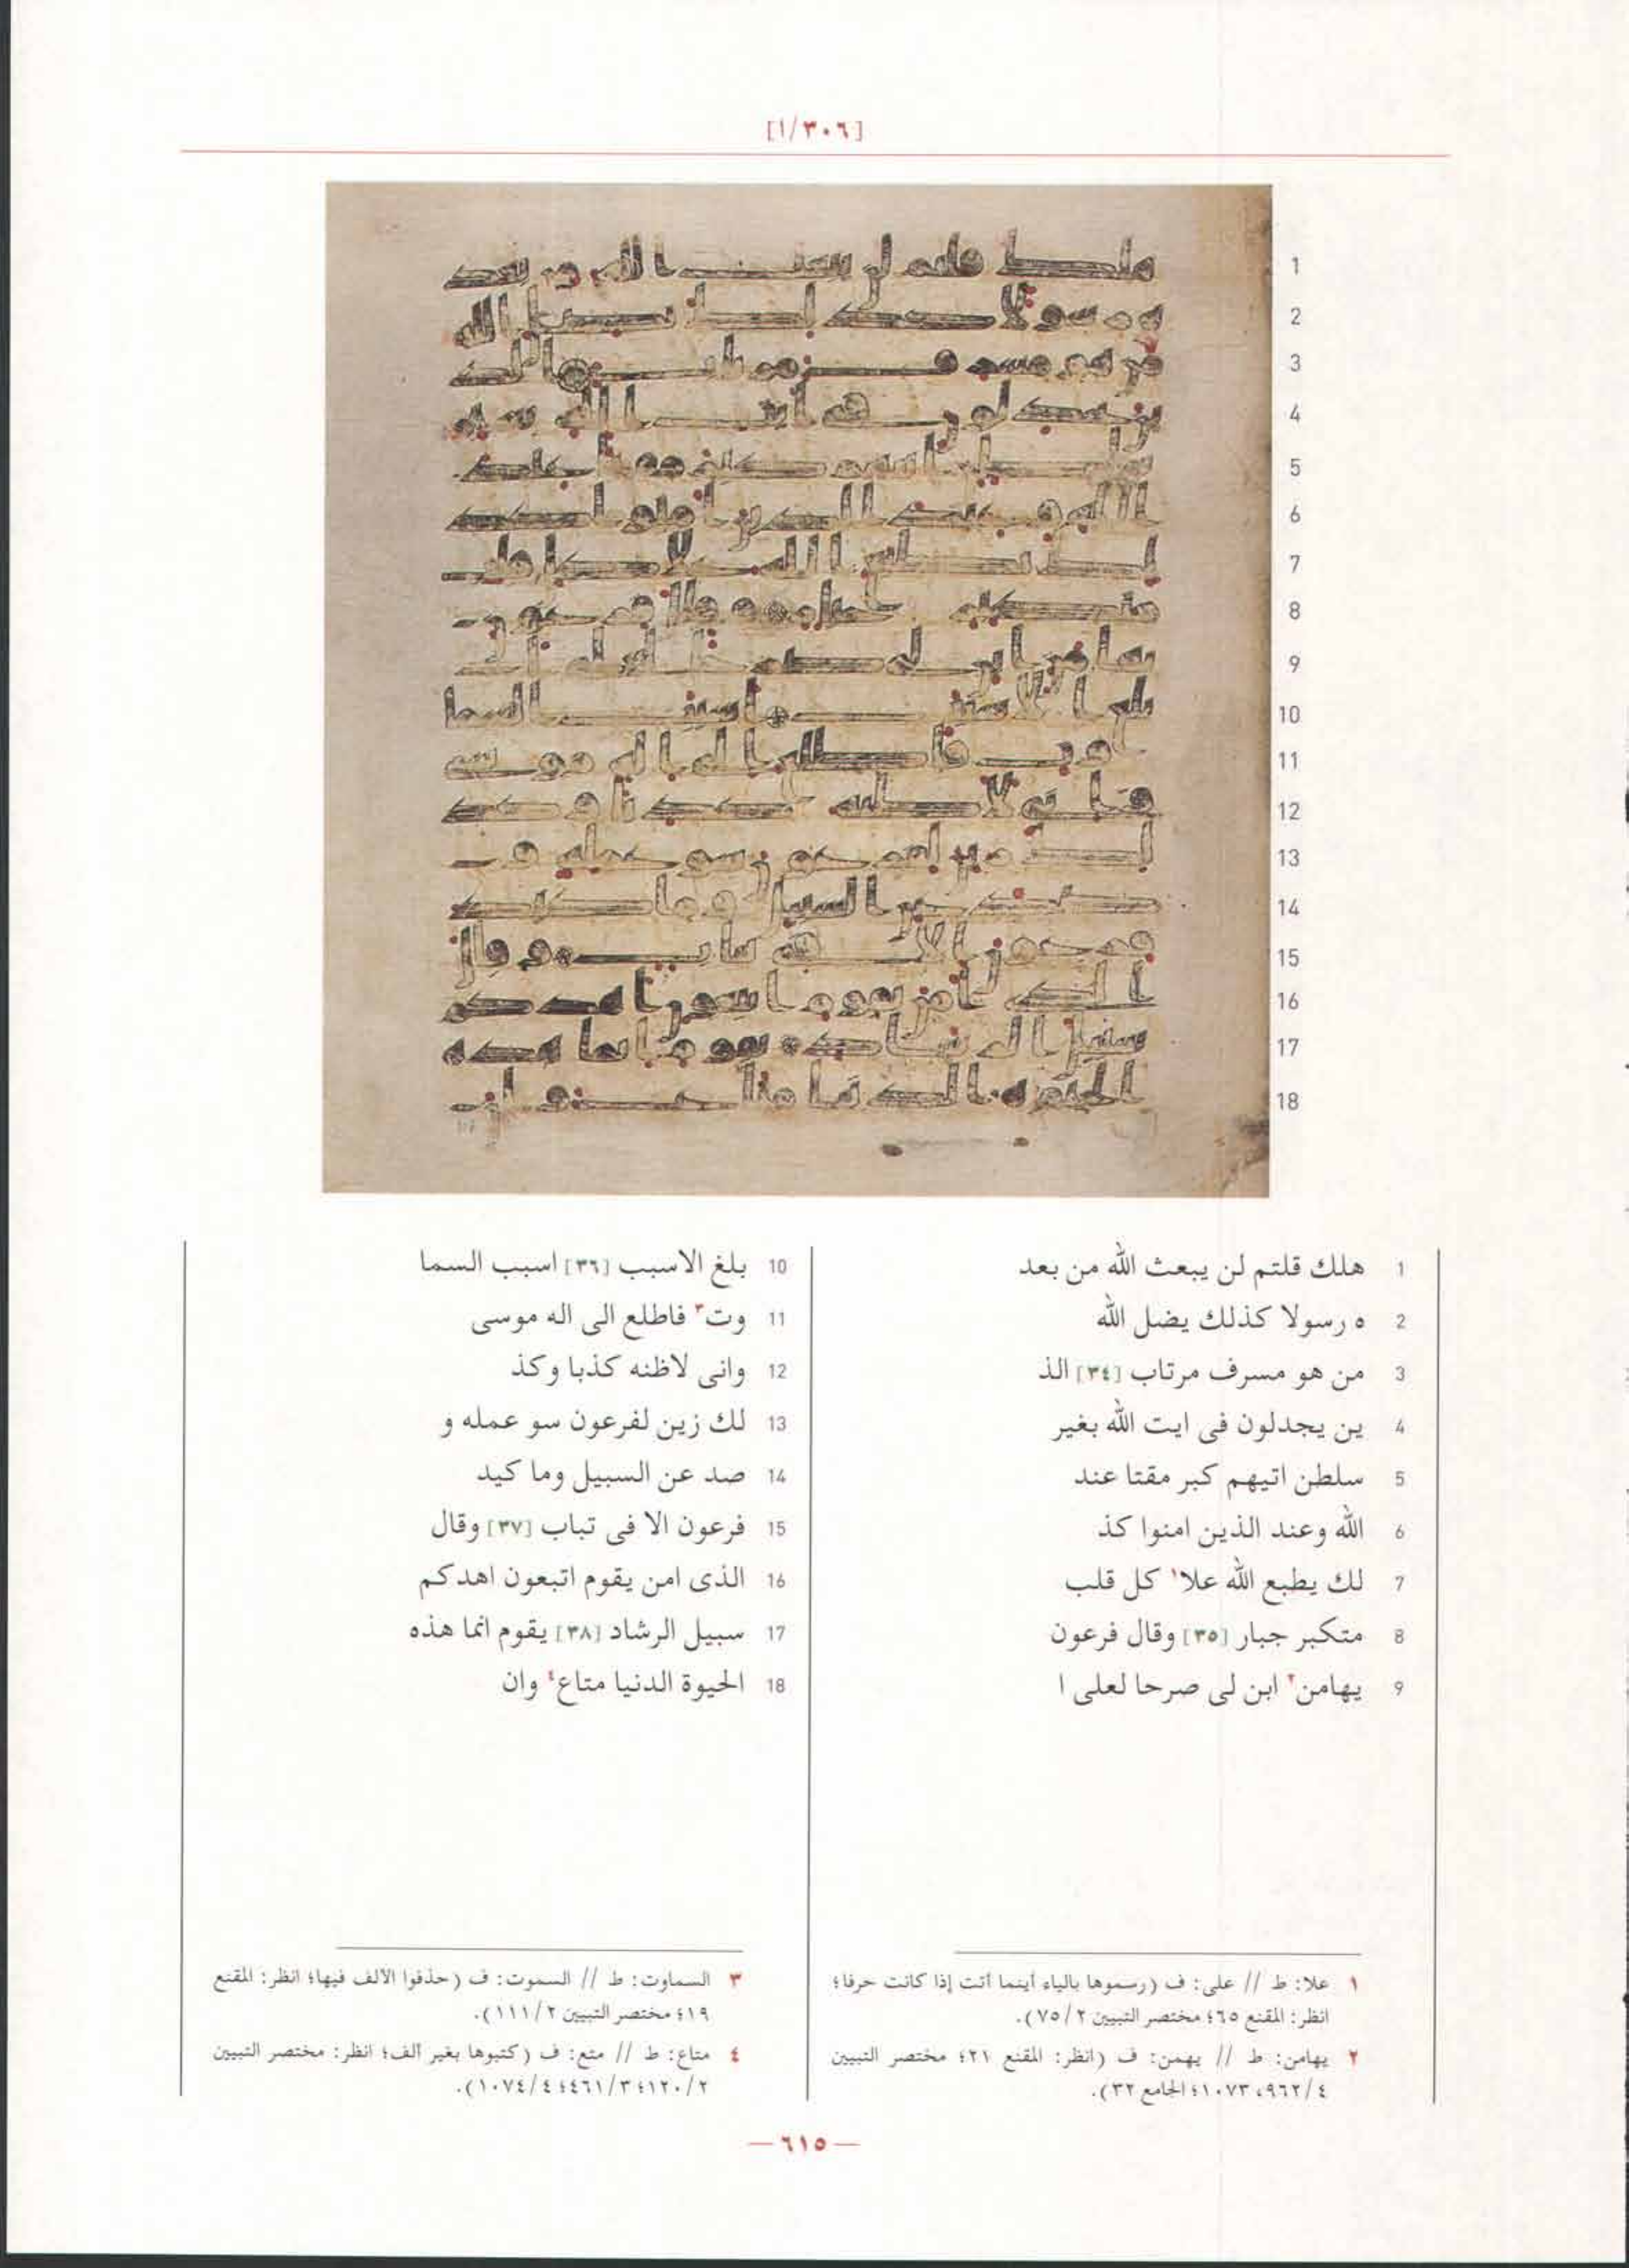 [١/٣٠٦]
1 هلك قلتم لن يبعث الله من بعد
2 ه رسولا كذلك يضل الله
3 من هو مسرف مرتاب [٣٤] الذ
4 ين يجدلون فى ايت الله بغير
5 سلطن اتيهم كبر مقتا عند
6 الله وعند الذين امنوا كذ
7 لك يطبع الله علا١ كل قلب
8 متكبر جبار [٣٥] وقال فرعون
9 يهامن٢ ابن لى صرحا لعلى ا
10 بلغ الاسبب [٣٦] اسبب السما
11 وت٣ فاطلع الى اله موسى
12 وانى لاظنه كذبا وكذ
13 لك زين لفرعون سو عمله و
14 صد عن السبيل وما كيد
15 فرعون الا فى تباب [٣٧] وقال
16 الذى امن يقوم اتبعون اهدكم
17 سبيل الرشاد [٣٨] يقوم انما هذه
18 الحيوة الدنيا متاع٤ وان
١ علا: ط // على: ف (رسموها بالياء أينما أتت إذا كانت حرفا؛
انظر: المقنع ٦٥؛ مختصر التبيين ٧٥/٢).
٢ يهامن: ط // يهمن: ف (انظر: المقنع ٢١؛ مختصر التبيين
٩٦٢/٤، ١٠٧٣؛ الجامع ٣٢).
٣ السماوت: ط // السموت: ف (حذفوا الألف فيها؛ انظر: المقنع
١٩؛ مختصر التبيين ١١١/٢).
٤ متاع: ط // متع: ف (كتبوها بغير ألف؛ انظر: مختصر التبيين
١٢٠/٢؛ ٤٦١/٣؛ ١٠٧٤/٤).
— ٦١٥ —